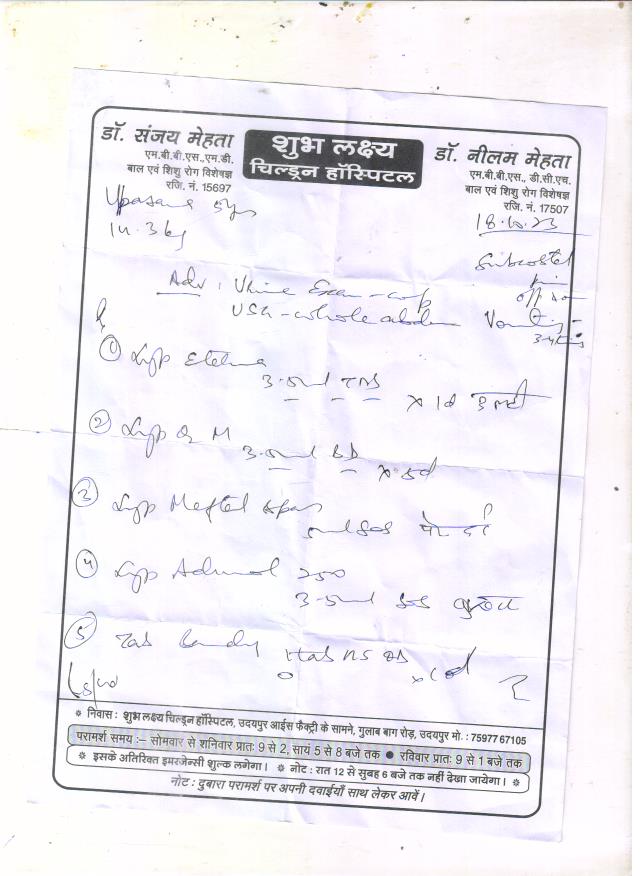 डॉ. संजय मेहता
एम.बी.बी.एस.,एम.डी.
बाल एवं शिशु रोग विशेषज्ञ
रजि. नं. 15697
शुभ लक्ष्य
चिल्ड्रन हॉस्पिटल
डॉ. नीलम मेहता
एम.बी.बी.एस., डी.सी.एच.
बाल एवं शिशु रोग विशेषज्ञ
रजि. नं. 17507
Upasana 5y
18.10.23
14.3kg
Adv: Urine Exam -
USG - whole abdomen
Subcostal
Vomiting -
① Syp
3.5ml TDS
x 1d उल्टी
② Syp O2 M
3.5ml BD
x 5d
③ Syp Meftal Spas
5ml SOS
④ Syp 250
3.5ml SOS बुखार
⑤ Tab Bandy
1tab HS OD
x 1d
✽ निवास : शुभ लक्ष्य चिल्ड्रन हॉस्पिटल, उदयपुर आईस फैक्ट्री के सामने, गुलाब बाग रोड़, उदयपुर मो. : 7597767105
परामर्श समय :– सोमवार से शनिवार प्रातः 9 से 2, सायं 5 से 8 बजे तक ● रविवार प्रातः 9 से 1 बजे तक
✽ इसके अतिरिक्त इमरजेन्सी शुल्क लगेगा। ✽ नोट : रात 12 से सुबह 6 बजे तक नहीं देखा जायेगा। ✽
नोट : दुबारा परामर्श पर अपनी दवाईयाँ साथ लेकर आवें।